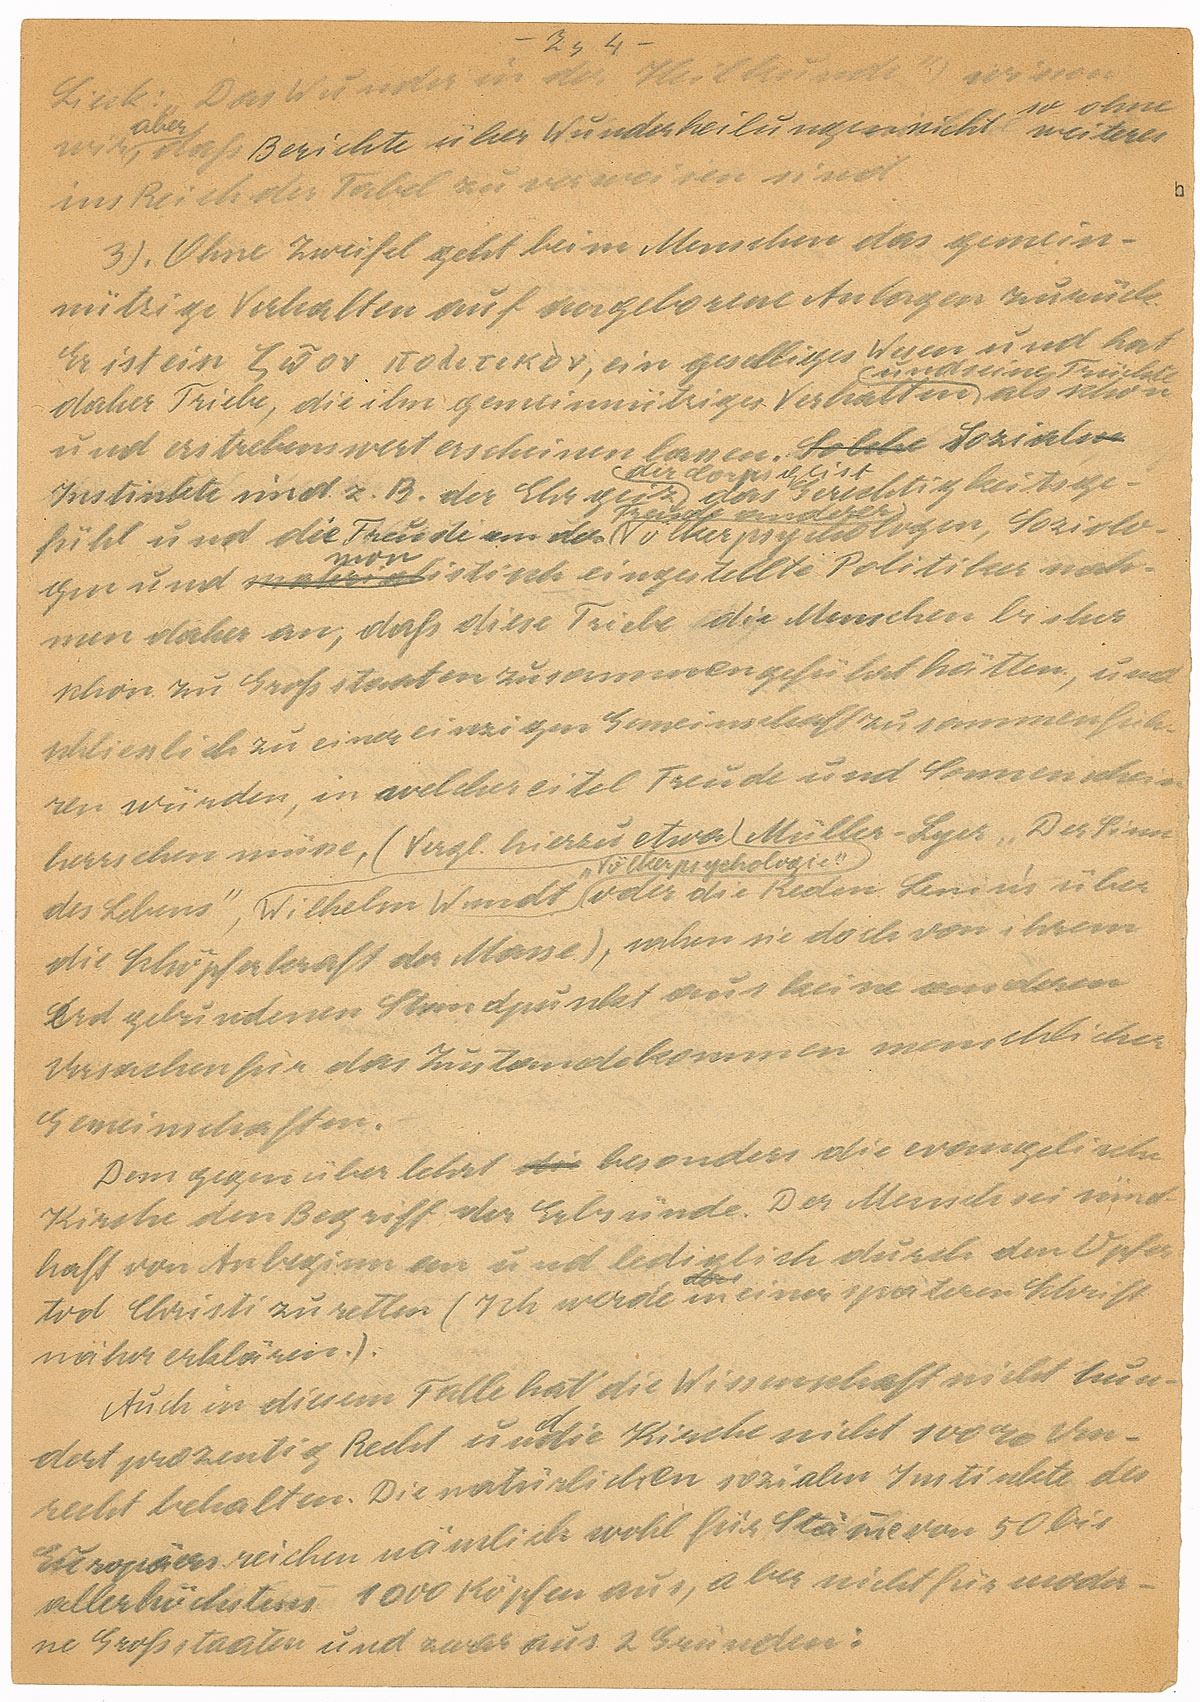 - Zg 4 -
Liek: „Das Wunder in der Heilkunde") wissen
wir, aber daß Berichte über Wunderheilungen nicht so ohne weiteres
ins Reich der Fabel zu verweisen sind
b
3). Ohne Zweifel geht beim Menschen das gemein-
nützige Verhalten auf angeborene Anlagen zurück.
Er ist ein ζῷον πολιτικόν, ein geselliges Wesen und hat
daher Triebe, die ihm gemeinnütziges Verhalten und seine Früchte als schön
und erstrebenswert erscheinen lassen. Solche Soziale
Instinkte sind z. B. der Ehrgeiz, der Corpsgeist das Gerechtigkeitsge-
fühl und die Freude an der Freude anderer Völkerpsychologen, Soziolo-
gen und marxistisch eingestellte Politiker nah-
men daher an, daß diese Triebe die Menschen bisher
schon zu Großstaaten zusammengeführt hätten, und
schliesslich zu einer einzigen Gemeinschaft zusammenfüh-
ren würden, in welcher eitel Freude und Sonnenschein
herrschen müsse, (Vergl. hierzu etwa Müller-Lyer „Der Sinn
des Lebens", Wilhelm Wundt „Völkerpsychologie" oder die Reden Lenins über
die Schöpferkraft der Masse), sehen sie doch von ihrem
Erdgebundenen Standpunkt aus keine anderen
Ursachen für das Zustandekommen menschlicher
Gemeinschaften.-
Demgegenüber lehrt die besonders die evangelische
Kirche den Begriff der Erbsünde. Der Mensch sei sünd-
haft von Anbeginn an und lediglich durch den Opfer-
tod Christi zu retten (Ich werde das in einer späteren Schrift
näher erklären.).
Auch in diesem Falle hat die Wissenschaft nicht hun-
dertprozentig Recht und die Kirche nicht 100% Un-
recht behalten. Die natürlichen sozialen Instinkte des
Europäers reichen nämlich wohl für Stämme von 50 bis
allerhöchstens 1000 Köpfen aus, aber nicht für moder-
ne Großstaaten und zwar aus 2 Gründen: